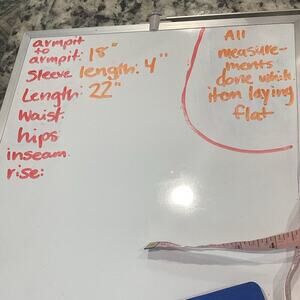 armpit
to
armpit: 18"
Sleeve length: 4"
Length: 22"
Waist:
hips
inseam
rise:
All
measure-
ments
done while
item laying
flat